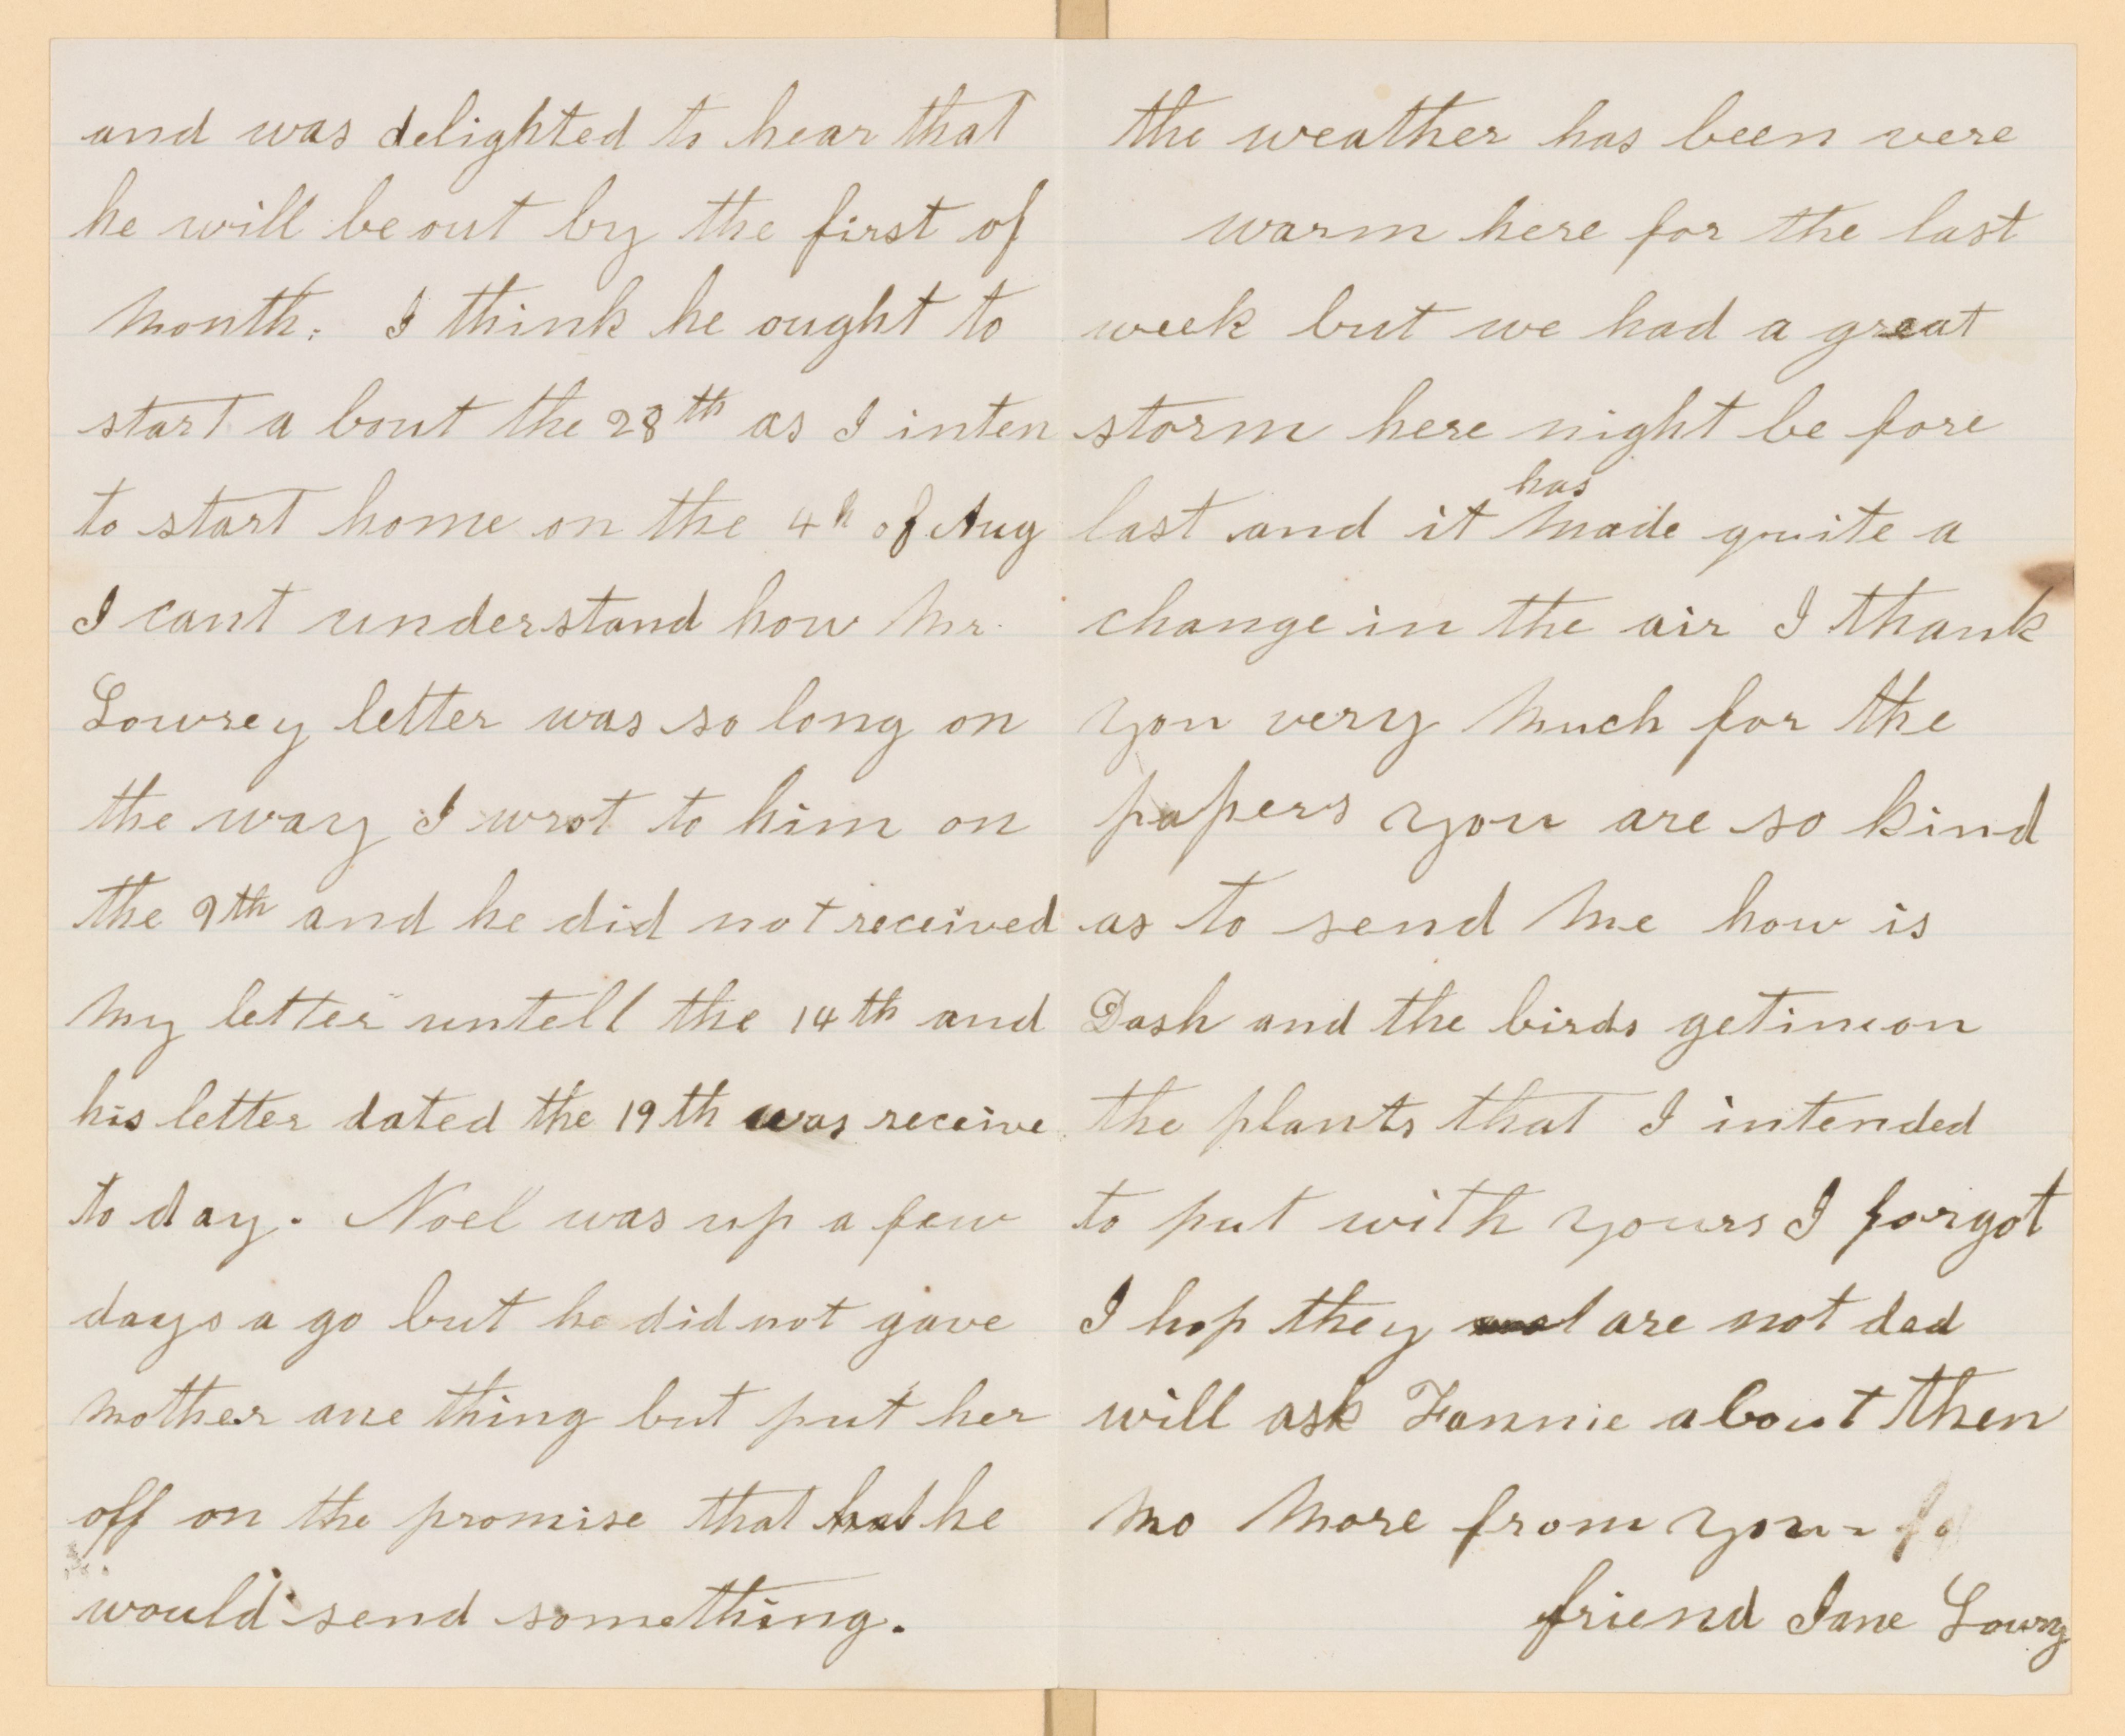 and was delighted to hear that
he will be out by the first of
month. I think he ought to
start a bout the 28th as I inten
to start home on the 4h of Aug
I cant understand how Mr.
Lowrey letter was so long on
the way I wrot to him on
the 9th and he did not received
my letter untell the 14th and
his letter dated the 19th was receive
to day. Noel was up a few
days a go but he did not gave
mother ane thing but put her
off on the promise that he
would send something.
the weather has been vere
warm here for the last
week but we had a great
storm here night be fore
last and it has made quite a
change in the air I thank
you very much for the
papers you are so kind
as to send me how is
Dash and the birds getin on
the plants that I intended
to put with yours I forgot
I hop they are not ded
will ask Fannie about then
no more from your
friend Jane Lowry